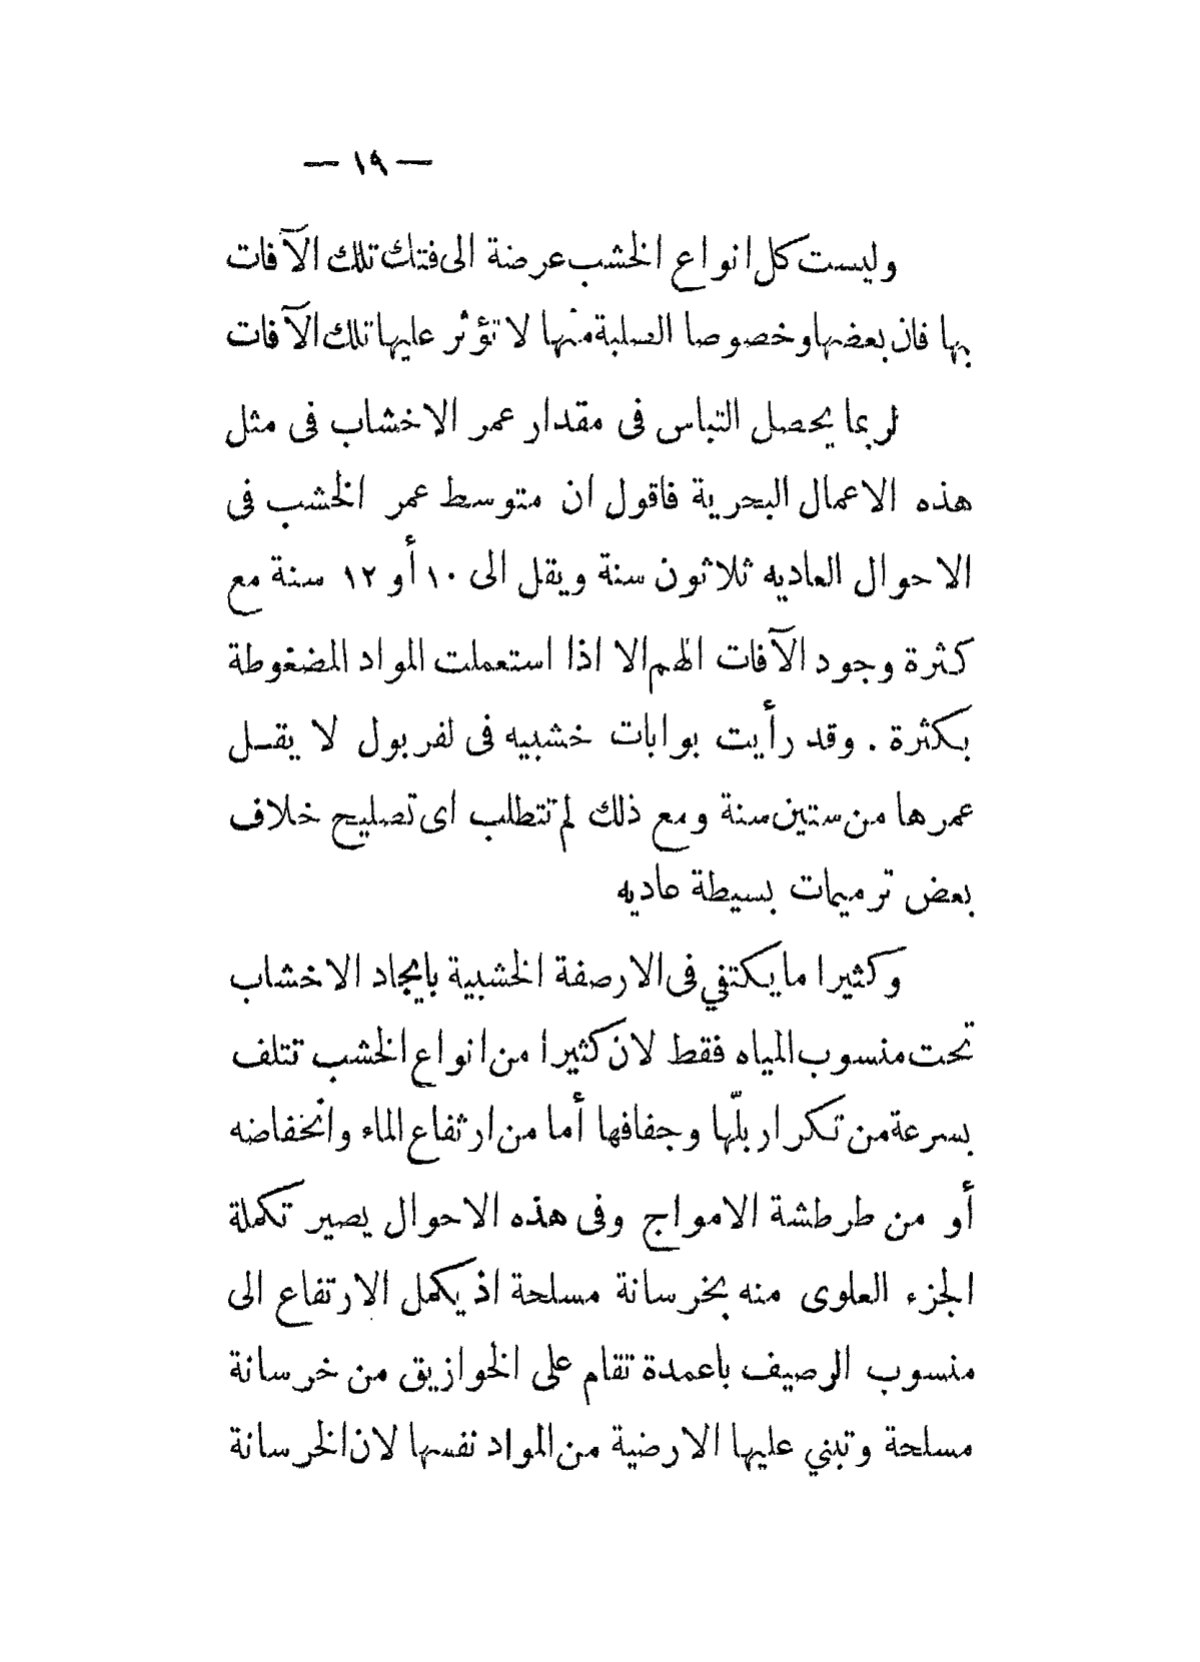 — ١٩ —
وليست كل انواع الخشب عرضة الى فتك تلك الآفات
بها فان بعضها وخصوصا الصلبة منها لا تؤثر عليها تلك الآفات
لربما يحصل التباس فى مقدار عمر الاخشاب فى مثل
هذه الاعمال البحرية فاقول ان متوسط عمر الخشب فى
الاحوال العاديه ثلاثون سنة ويقل الى ١٠ أو ١٢ سنة مع
كثرة وجود الآفات الهم الا اذا استعملت المواد المضغوطة
بكثرة . وقد رأيت بوابات خشبيه فى لفربول لا يقــل
عمرها من ستين سنة ومع ذلك لم تتطلب اى تصليح خلاف
بعض ترميمات بسيطة عاديه
وكثيرا ما يكتفي فى الارصفة الخشبية بايجاد الاخشاب
تحت منسوب المياه فقط لان كثيرا من انواع الخشب تتلف
بسرعة من تكرار بلّها وجفافها أما من ارتفاع الماء وانخفاضه
أو من طرطشة الامواج وفى هذه الاحوال يصير تكملة
الجزء العلوى منه بخرسانة مسلحة اذ يكمل الارتفاع الى
منسوب الرصيف باعمدة تقام على الخوازيق من خرسانة
مسلحة وتبني عليها الارضية من المواد نفسها لان الخرسانة